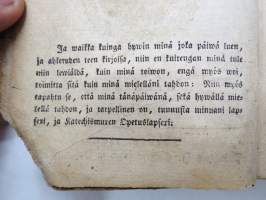 Ja waikka kuinga hywin minä joka päiwä luen,
ja ahkeruden teen kirjoisa, niin en kuitengan minä tule
niin tewiäldä, kuin minä toiwon, engä myös woi,
toimitta sitä kuin minä mielelläni tahdon: Niin myös
tapahtu se, että minä tänäpäiwänä, sekä hywällä mie-
lellä tahdon, ja tarpellinen on, tunnusta minuani lap-
sexi, ja Katechismuxen Opetuslapsexi: